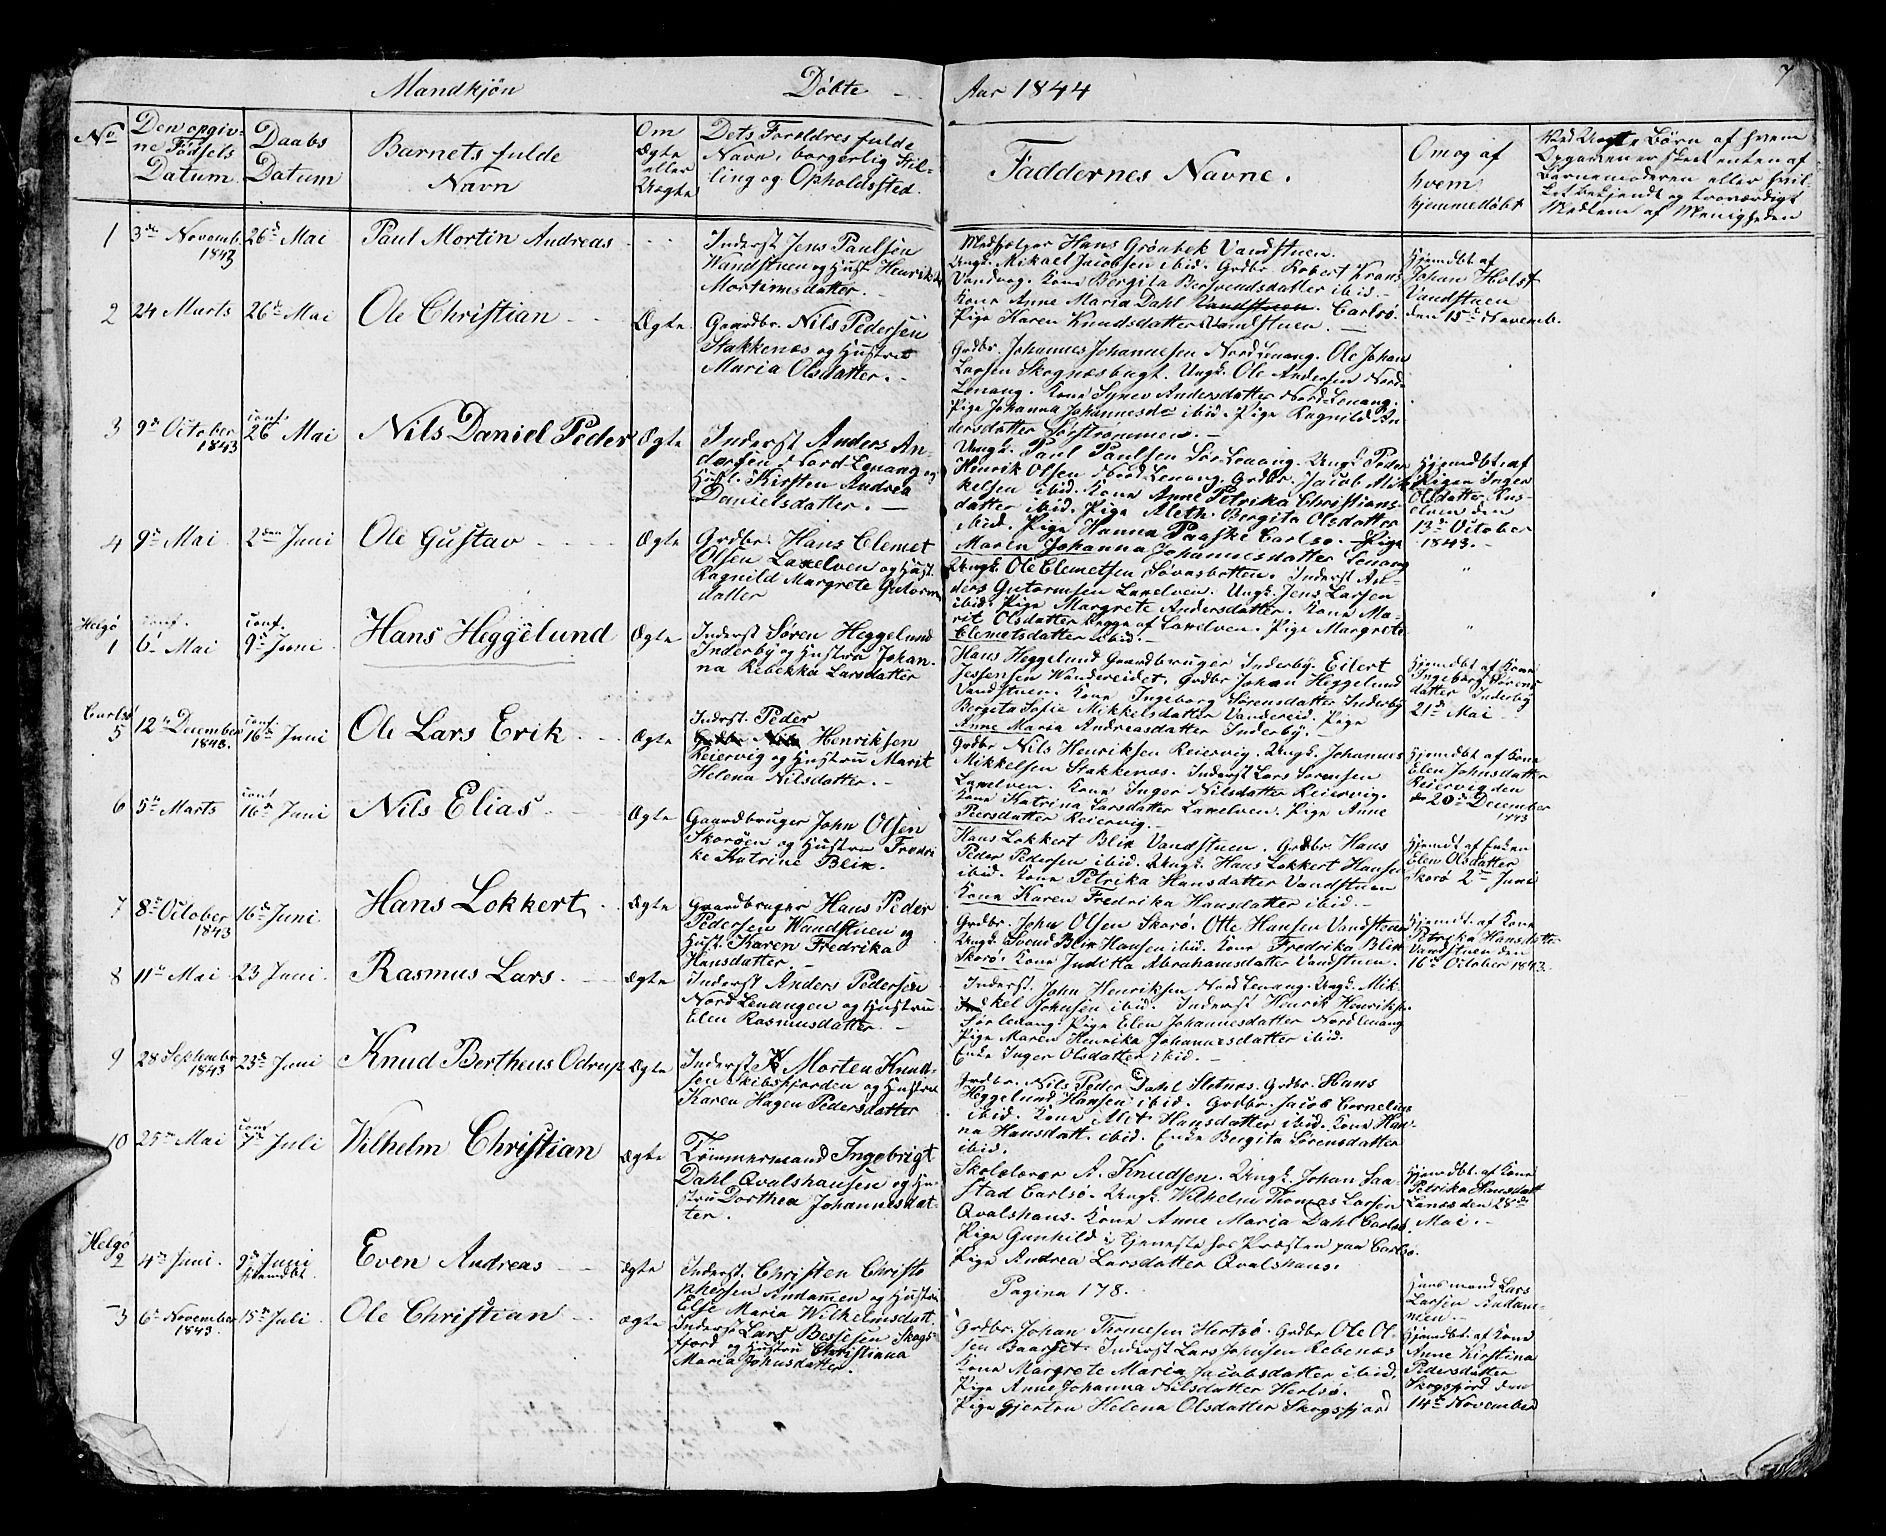 Mandkjön Döbte Aar 1844 7
No
Den opgiv-
ne Födsels
Datum
Daabs
Datum
Barnets fulde
Navn
Om
Ægte
eller
Uægte
Dets Forældres fulde
Navn, borgerlig Stil-
ling og Opholdsted.
Faddernes Navne.
Om og af
hvem
hjemmedöbt
Ved Uægte Börn af hvem
Opgaven er skeet enten af
Barnemoderen eller hvil-
ket bekjendt og troværdigt
Medlem af Menigheden
1 3die Novemb. 1843 26d Mai Paul Mortin Andreas
Inderst Jens Paulsen
Vandstuen og Hust. Henrikka
Mortinusdatter.
Hans Grönbek Vandstuen.
Ungk. Mikael Jacobsen ibid. Grdbr. Robert Krans
Vandvag. Kone Bergita Berhendsdatter ibid.
Kone Anne Maria Dahl Vandstuen. Carlsö.
Pige Karen Knudsdatter Vandstuen.
Hjemdbt af
Johan Holst
Vandstuen
den 15d Novemb.
2 24 Marts 26d Mai Ole Christian Ægte
Gaardbr. Nils Pedersen
Stakkenæs og Hustru
Maria Olsdatter.
Grdbr. Johannes Johannesen Nord Lenang. Ole Johan
Larsen Skognæsbugt. Ungk. Ole Andersen Nord-
Lenang. Kone Synev Andersdatter Nord-Lenang.
Pige Johanna Johannesda ibid. Pige Ragnild An
dersdatter Sörströmmen.
3 9d October 1843 conf. 26 Mai Nils Daniel Peder Ægte
Inderst Anders An-
dersen Nord Lenang og
Hust. Kirsten Andrea
Danielsdatter.
Ungk. Paul Paulsen Sör-Lenang. Ungk. Peder
Henrik Olsen Nord Lenang. Grdbr. Jacob Mik
kelsen ibid. Kone Anne Petrika Christians-
datter ibid. Pige Aleth Bergita Olsdatter
ibid. Pige Hanna Paaske Carlsö. Pige
Maren Johanna Johannesdatter Lenang
Hjemdbt. af
Pigen Inger
Olsdatter Rus-
elven den
13d October
1843.
4 9d Mai 2den Juni Ole Gustav Ægte
Grdbr. Hans Clemet
Olsen Laxelven og Hust.
Ragnild Margrete Gutorms
datter
Ungk. Ole Clemetsen Sövasbotten. Inderst An-
ders Gutormsen Laxelven. Ungk. Jens Larsen
ibid. Pige Margrete Andersdatter. Kone Ma-
rit Olsdatter begge af Laxelven. Pige Margrete
Clemetsdatter ibid.
Helgö
1 conf. 6d Mai conf. 9d Juni Hans Heggelund Ægte
Inderst Sören Heggelund
Inderby og Hustru Johan-
na Rebekka Larsdatter
Hans Heggelund Gaardbruger Inderby. Eilert
Jessensen Vandereidet. Grdbr Johan Heggelund
Vandstuen. Kone Ingeborg Sörensdatter Inderby
Bergita Sofie Mikkelsdatter Vandereid. Pige
Anne Maria Andreasdatter Inderby.
Hjemdbt af Kone
Ingeborg Sörens
datter Inderby
21d Mai
Carlsö
5 12te December 1843. conf. 16d Juni Ole Lars Erik Ægte
Inderst. Peder
Grdbr Nils Henriksen
Reiervig og Hustru Marit
Helena Nilsdatter.
Grdbr Nils Henriksen Reiervig. Ungk. Johannes
Mikkelsen Stakkenæs. Inderst Lars Sörensen
Laxelven. Kone Inger Nilsdatter Reiervig.
Kone Katrina Larsdatter Laxelven. Pige Anne
Peersdatter Reiervig.
Hjemdbt af Kone
Elen Johnsdatter
Reiervig den
20d December
1843
6 5te Marts conf 16d Juni Nils Elias Ægte
Gaardbruger John Olsen
Skoröen og Hustru Fredri
ke Katrine Blix.
Hans Lokkert Blix Vandstuen. Grdbr. Hans
Peder Pedersen ibid. Ungk. Hans Lokkert Hansen
ibid. Kone Petrika Hansdatter Vandstuen
Kone Karen Fredrika Hansdatter ibid.
Hjemdt af Enken
Elen Olsdatter
Skorö 2den Juni
7 8de October 1843 16d Juni. Hans Lokkert Ægte
Gaardbruger Hans Peder
Pedersen Wandstuen og
Hust. Karen Fredrika
Hansdatter.
Grdbr. John Olsen Skorö. Otte Hansen Vandstuen
Ungk. Svend Blix Hansen ibid. Kone Fredrika Blix
Skorö. Kone Juditta Abrahamsdatter Vandstuen.
Hjemdt. af Kone
Petrika Hansdatter
Vandstuen den
16d October 1843.
8 11te Mai 23 Juni. Rasmus Lars. Ægte
Inderst Anders Pedersen
Nord Lenangen og Hustru
Elen Rasmusdatter.
Inderst. John Henriksen Nord Lenang. Ungk. Mik
kel Johnsen ibid. Inderst Henrik Henriksn
Sörlenang. Pige Elen Johannesdatter Nordlenang
Pige Maren Henrika Johannesdatter ibid.
Enke Inger Olsdatter ibid.
9 28 September 1843 23d Juni Knud Bertheus Odrup Ægte
Inderst Morten Knud-
sen Skibsfjorden og Hustru
Karen Hagen Pedersdatter
Grdbr. Nils Peder Dahl Sletnæs. Grdbr. Hans
Heggelund Hansen ibid. Grdbr. Jacob Cornelius
ibid. Kone Alet Hansdatter ibid. Kone Han-
na Hansdatt. ibid. Enke Bergita Sörensdatter
ibid.
10 25de Mai conf 7d Juli Wilhelm Christian Ægte
Tömmermand Ingebrigt
Dahl Qvalshausen og Hu-
stru Dorthea Johannesdat-
ter.
Skolelærer A. Knudsen. Ungk. Johan Saa-
stad Carlsö. Ungk. Wilhelm Thomas Larsen
Qvalshaus. Kone Anne Maria Dahl Carlsö
Pige Gunhild i Tjeneste hos Præsten paa Carlsö.
Pige Andrea Larsdatter Qvalshaus.
Hjemdbt. af Kone
Petrika Hansdatt
Lanæs den 28d
Mai.
Helgö
2 4de Juni. 9d Juni hjemdbt. Even Andreas Ægte
Inderst. Christen Christo
phersen Andamen og Hustru
Else Maria Wilhelmsdatt
Pagina 178.
Husmand Lars
Larsen Andam-
men
3 6te November 1843. 15d Juli Ole Christian Ægte
Inderst Lars Bessesen Skogs-
fjord og Hustru Christiana
Maria Johnsdatter.
Grdbr. Johan Thomesen Hertsö. Grdbr Ole Ol-
sen Baarset. Inderst Lars Johnsen Rebenæs
Kone Margrete Maria Jacobsdatter ibid.
Pige Anne Johanna Nilsdatter Hertsö.
Pige Gjertru Helena Olsdatter Skogsfjord
Hjemdbt. af Kone
Anne Kirstina
Pedersdatter
Skogsfjord den
14de November